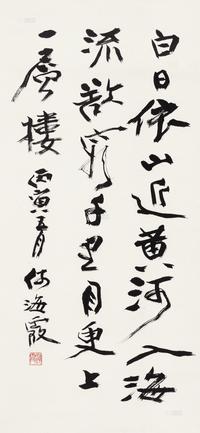 白日依山近黄河入海
流欲穷千里目更上
一層樓 丙寅五月 何海霞